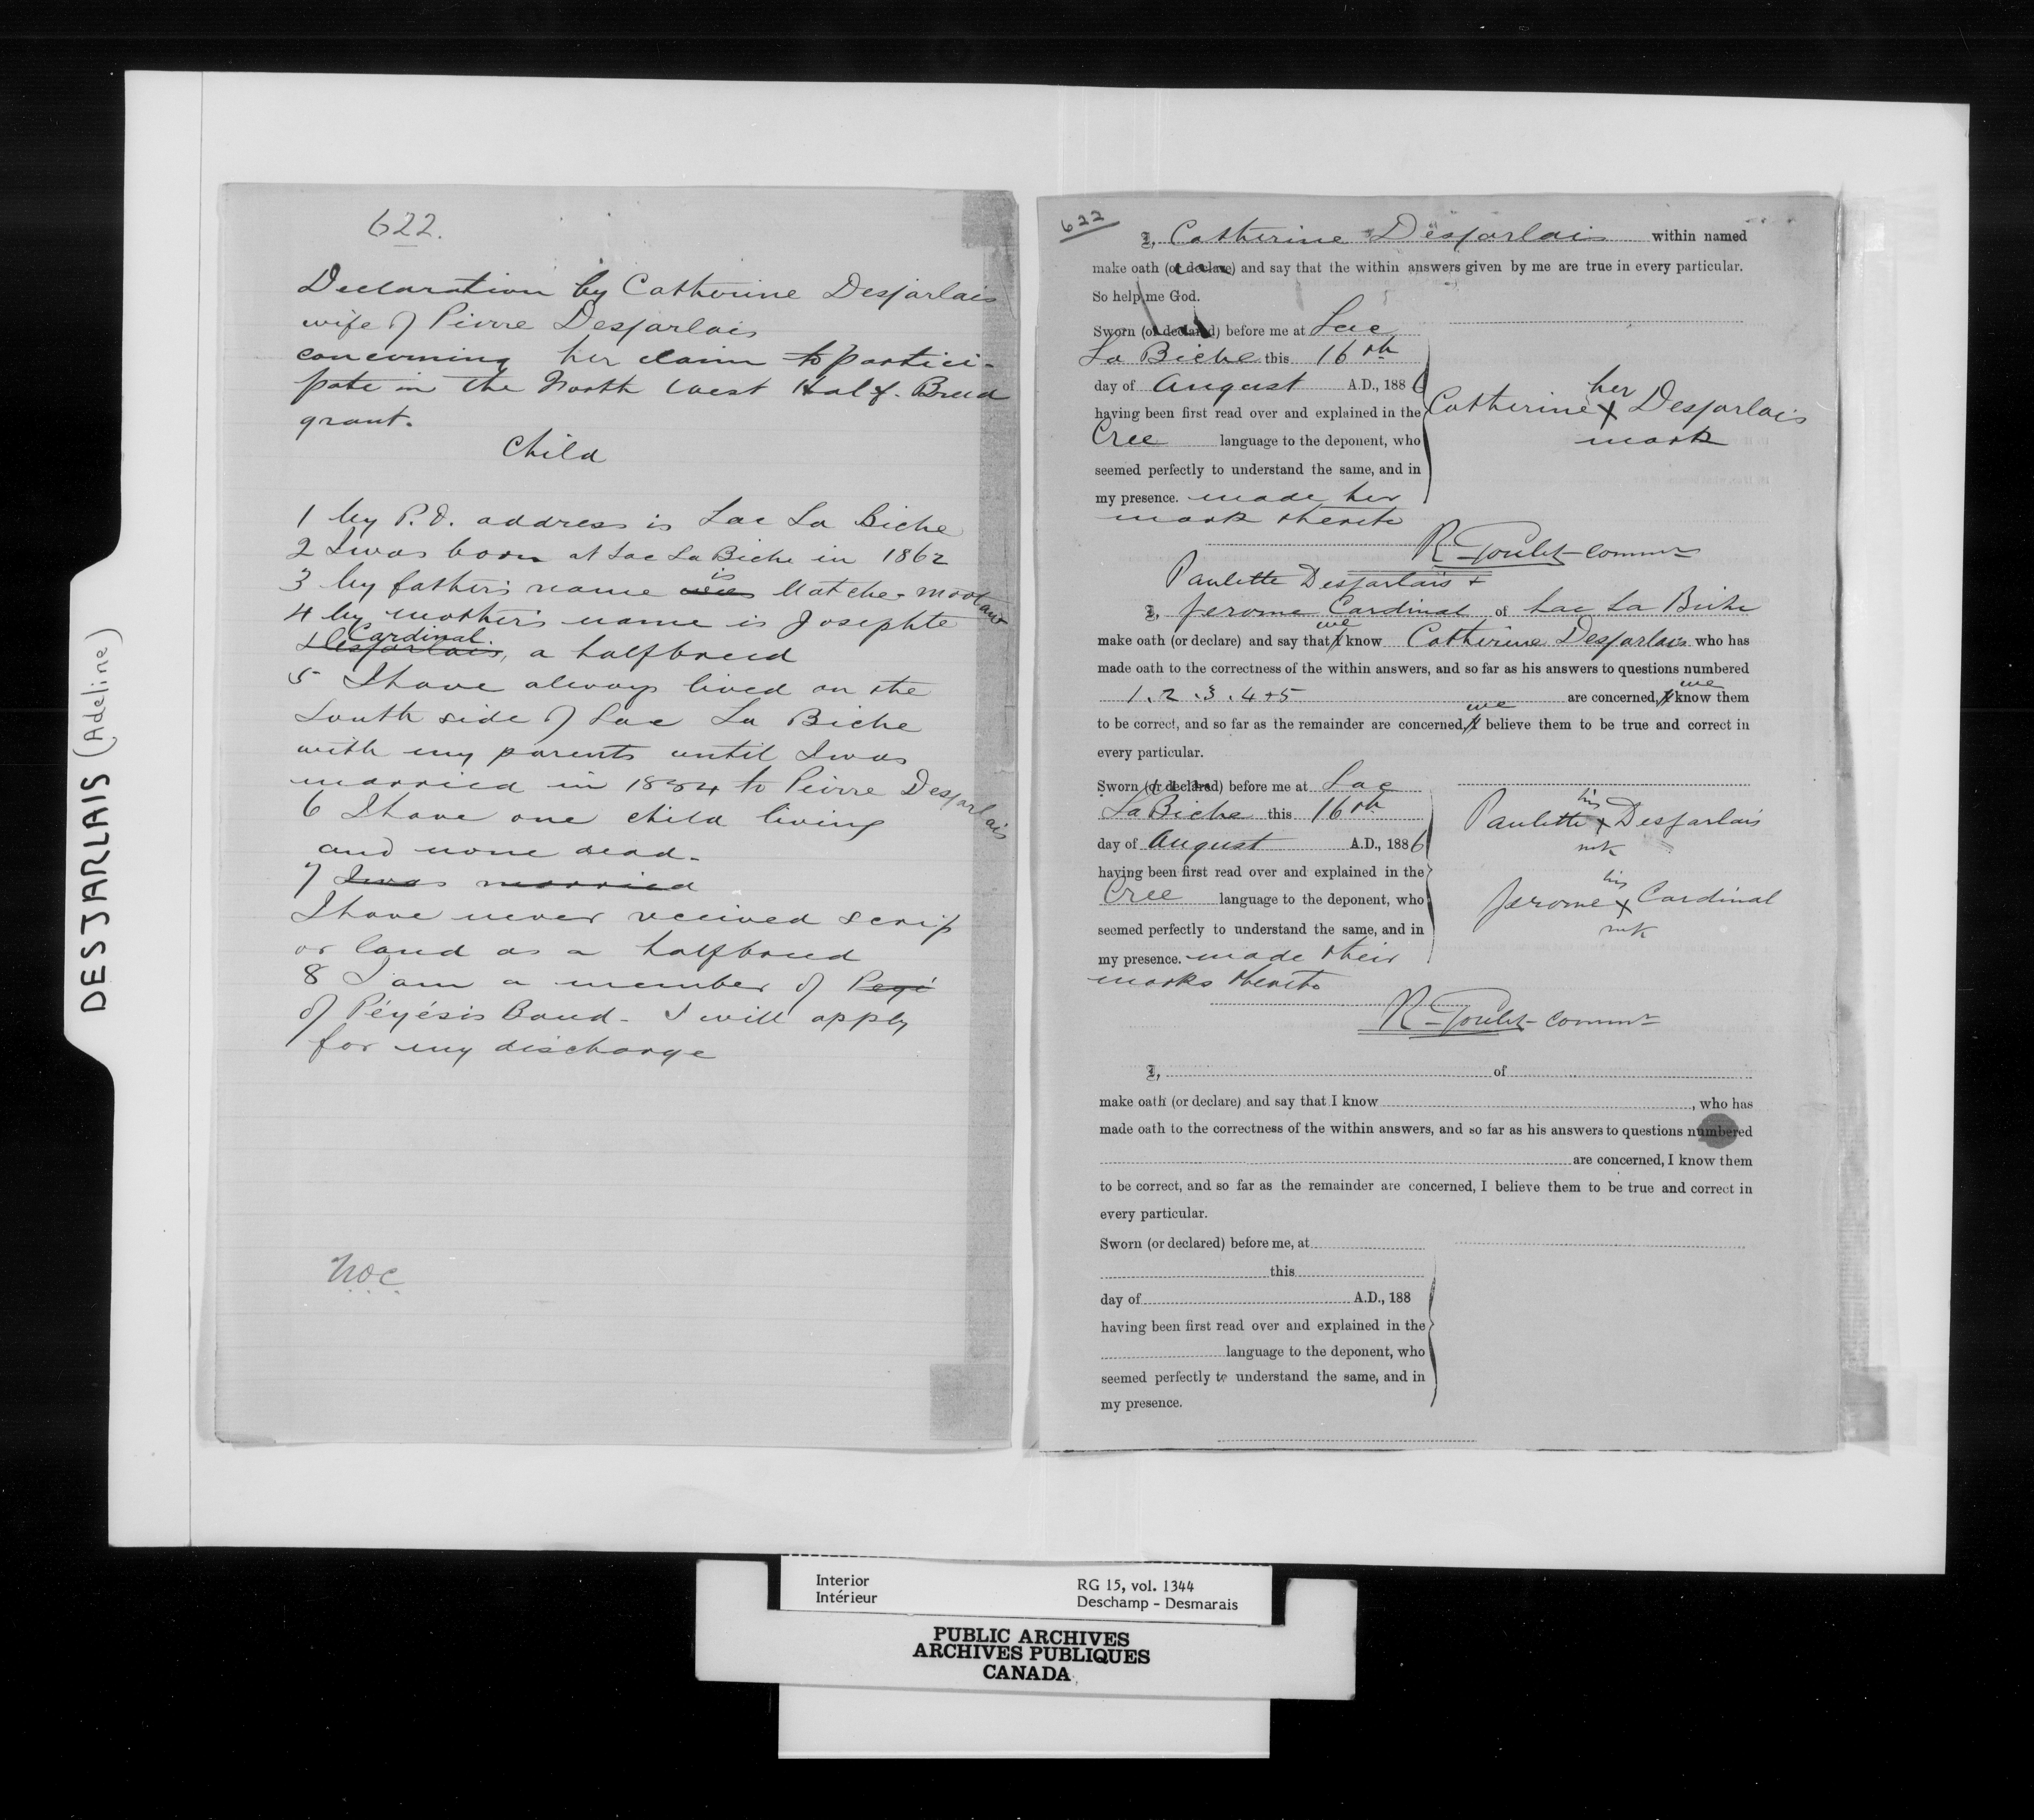 DESJARLAIS (Adeline)
622.
Declaration by Catherine Desjarlais
wife of Pierre Desjarlais
concerning her claim to partici-
pate in the North West Half-Breed
grant.
Child
1 My P.O. address is Lac La Biche
2 I was born at Lac La Biche in 1862
3 My father's name was is Matche-Mootaw
4 My mother's name is Josephte
Desjarlais Cardinal, a halfbreed
5 I have always lived on the
South side of Lac La Biche
with my parents until I was
married in 1884 to Pierre Desjarlais
6 I have one child living
and none dead.
7 I was married
I have never received scrip
or land as a halfbreed
8 I am a member of Peyé
of Péyésis Band - I will apply
for my discharge
622
I, Catherine Desjarlais within named
make oath (or declare) and say that the within answers given by me are true in every particular.
So help me God.
Sworn (or declared) before me at Lac
La Biche this 16th
day of August A.D., 1886
having been first read over and explained in the
Cree language to the deponent, who
seemed perfectly to understand the same, and in
my presence. made her
mark thereto
her
Catherine X Desjarlais
mark
R. Goulet Commr
Paulette Desjarlais +
I, Jerome Cardinal of Lac La Biche
make oath (or declare) and say that I we know Catherine Desjarlais who has
made oath to the correctness of the within answers, and so far as his answers to questions numbered
1. 2. 3. 4 + 5 are concerned, I we know them
to be correct, and so far as the remainder are concerned, I we believe them to be true and correct in
every particular.
Sworn (or declared) before me at Lac
La Biche this 16th
day of August A.D., 1886
having been first read over and explained in the
Cree language to the deponent, who
seemed perfectly to understand the same, and in
my presence. made their
marks thereto
his
Paulette X Desjarlais
mk
his
Jerome X Cardinal
mk
R. Goulet Commr
I, of
make oath (or declare) and say that I know , who has
made oath to the correctness of the within answers, and so far as his answers to questions numbered
are concerned, I know them
to be correct, and so far as the remainder are concerned, I believe them to be true and correct in
every particular.
Sworn (or declared) before me, at
this
day of A.D., 188
having been first read over and explained in the
language to the deponent, who
seemed perfectly to understand the same, and in
my presence.
Interior
Intérieur
RG 15, vol. 1344
Deschamp - Desmarais
PUBLIC ARCHIVES
ARCHIVES PUBLIQUES
CANADA